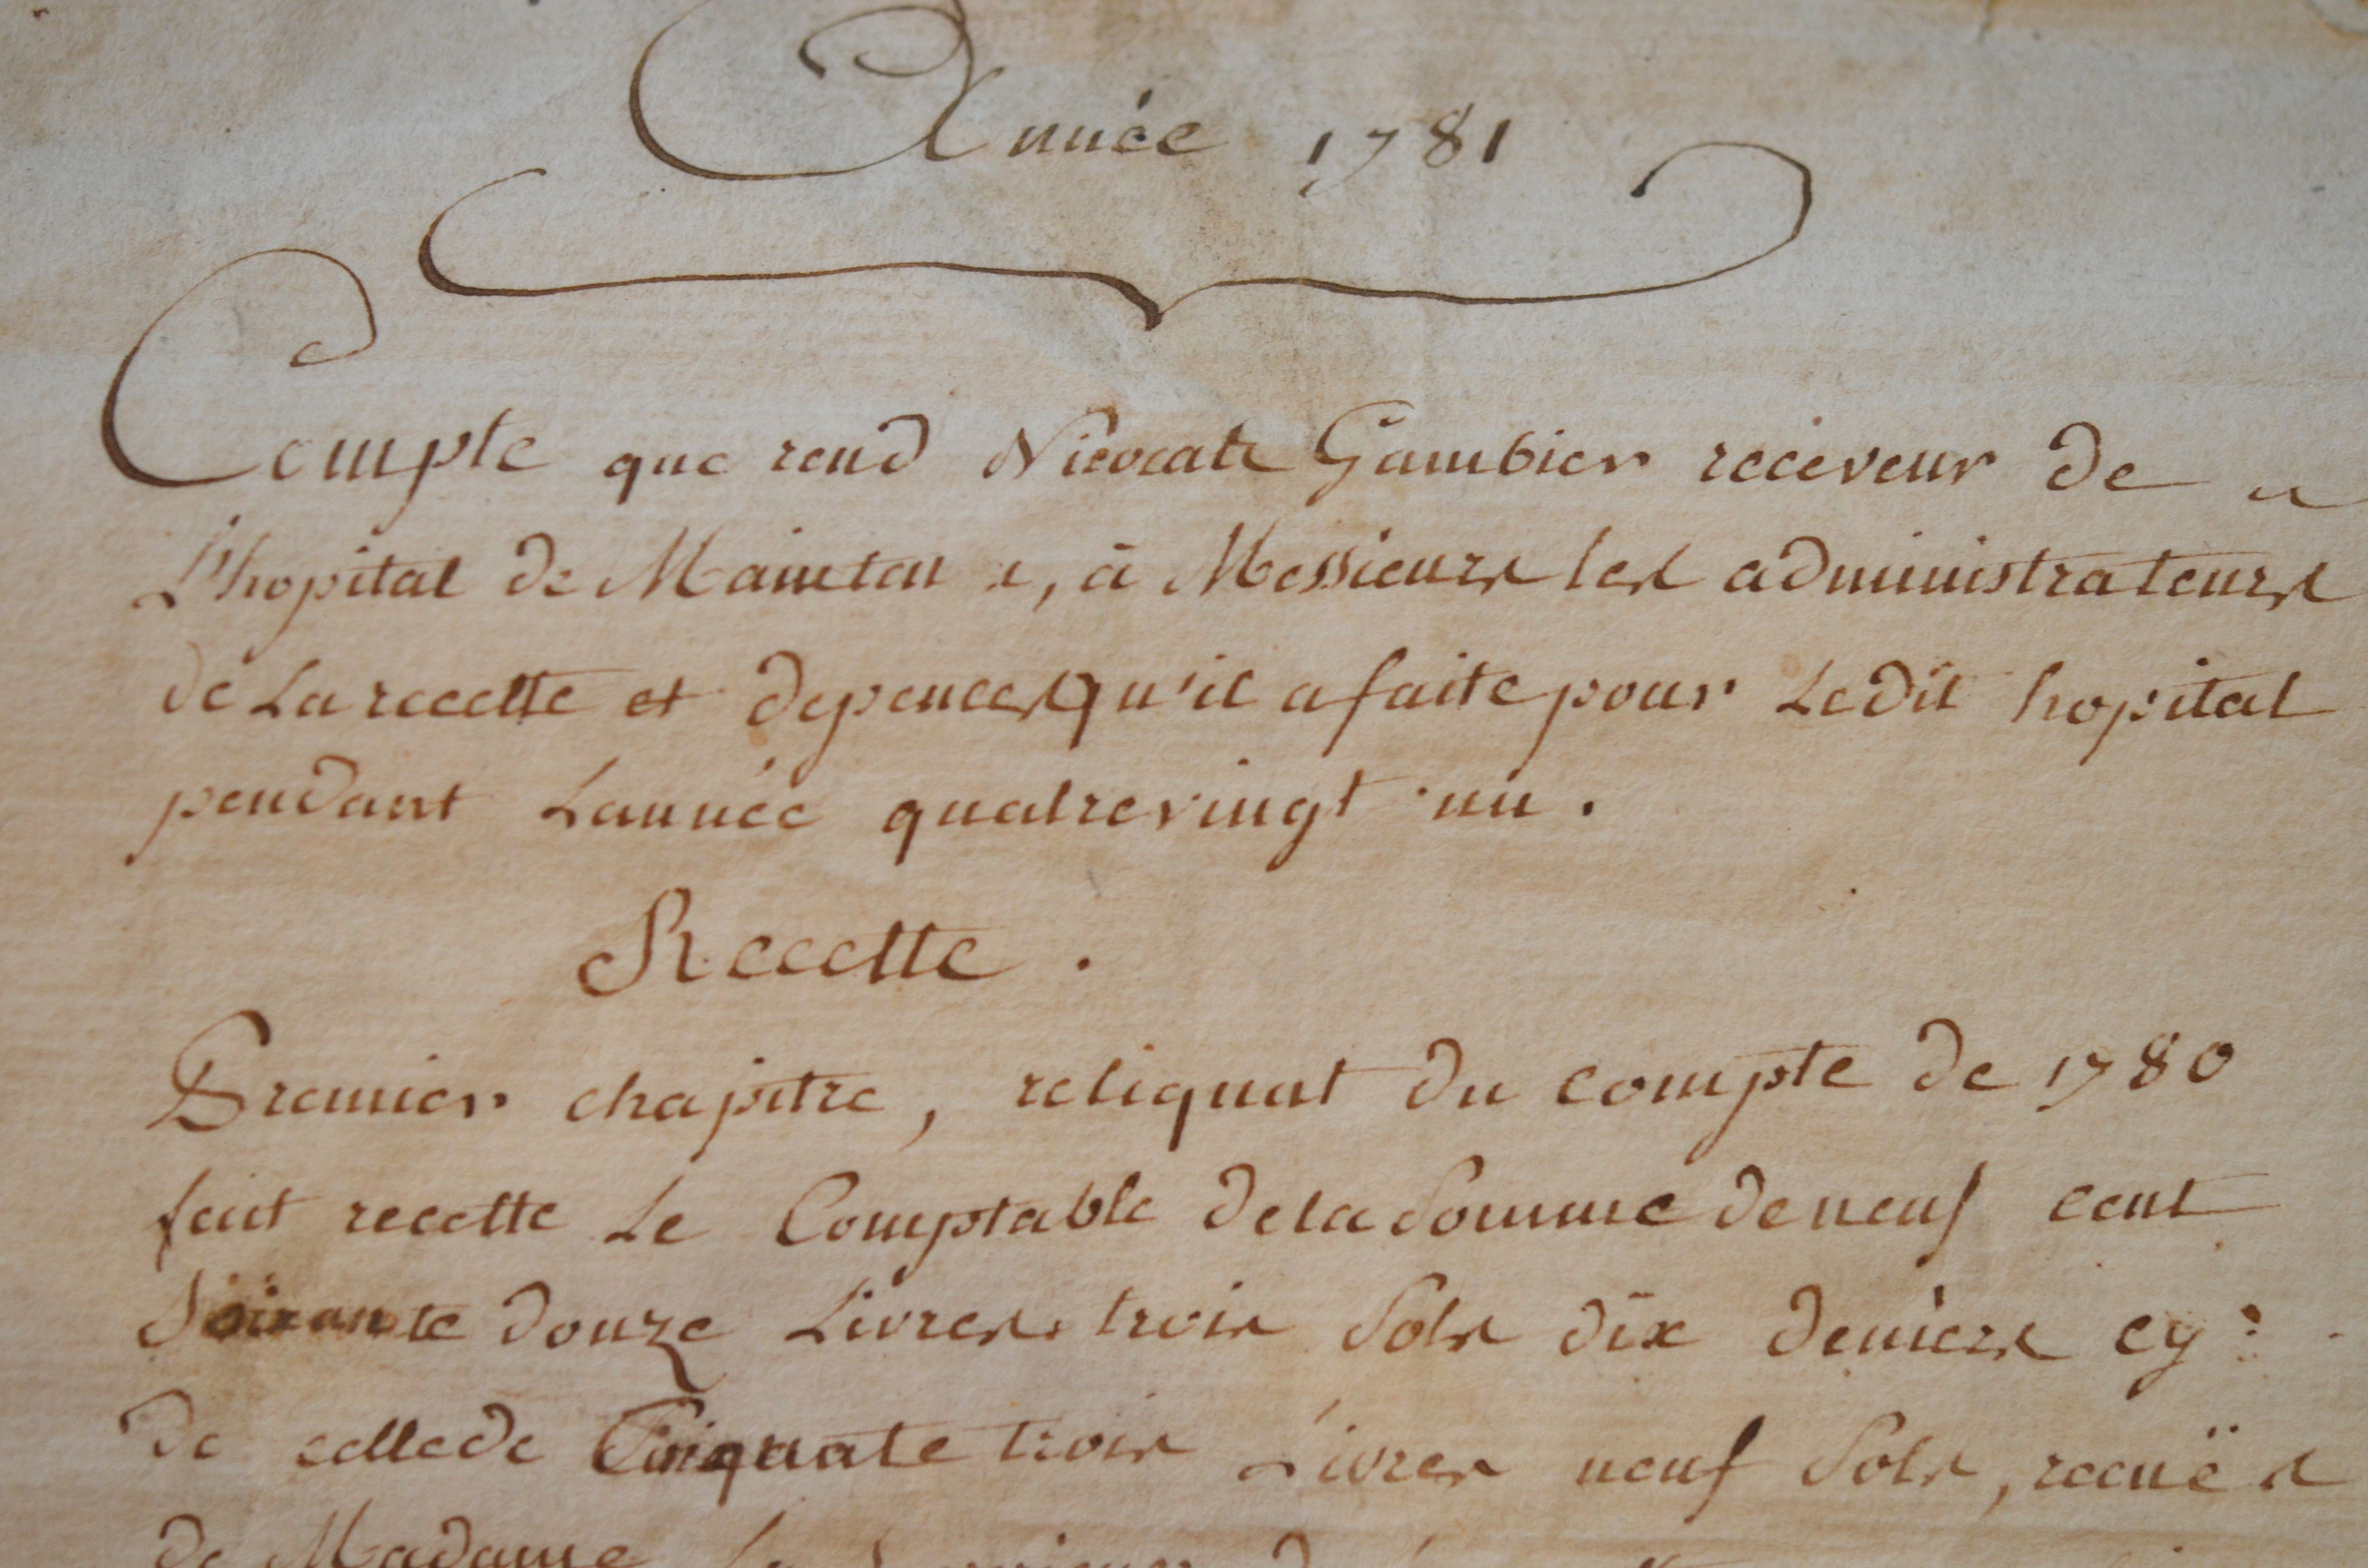 Année 1781
Compte que rend Gambier receveur de
L'hopital de Mainten , à Messieurs les administrateurs
de La recette et depences qu'il a faite pour Ledit hopital
pendant Lannée quatrevingt un .
Recette .
Premier chapitre, reliquat du compte de 1780
fait recette Le Comptable de la Somme de neuf cent
Soixante douze Livres trois Sols dix deniers cy :
de celle de Cinquate trois Livres neuf Sols, recuë s
de Madame La